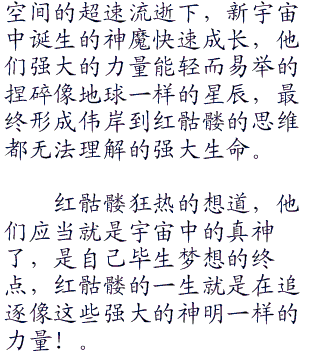 空间的超速流逝下，新宇宙
中诞生的神魔快速成长，他
们强大的力量能轻而易举的
捏碎像地球一样的星辰，最
终形成伟岸到红骷髅的思维
都无法理解的强大生命。
红骷髅狂热的想道，他
们应当就是宇宙中的真神
了，是自己毕生梦想的终
点，红骷髅的一生就是在追
逐像这些强大的神明一样的
力量！。